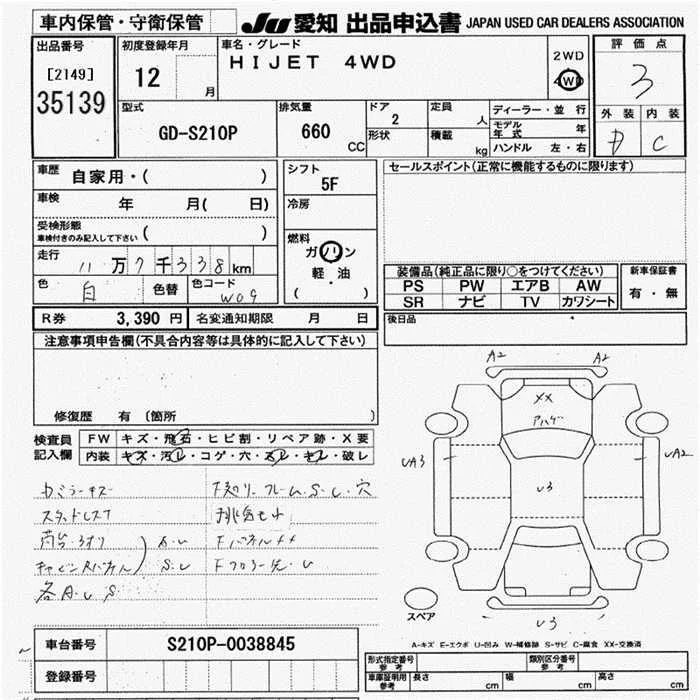 車内保管・守衛保管
JU 愛知 出品申込書 JAPAN USED CAR DEALERS ASSOCIATION
出品番号
[2149]
35139
初度登録年月
12 月
車名・グレード
HIJET 4WD
2WD
4WD
評価点
3
外装 内装
D C
型式
GD-S210P
排気量
660 CC
ドア
2
形状
定員
人
積載
kg
ディーラー・並行
モデル年式 年
ハンドル 左・右
車歴
自家用・( )
車検
年 月( 日)
受検形態
車検付きのみ記入して下さい ( )
走行
11万7千338km
色
白
色替
色コード
W09
シフト
5F
冷房
燃料
ガソリン
軽・油
( ・ )
セールスポイント(正常に機能するものに限ります)
装備品(純正品に限り○をつけてください)
PS PW エアB AW
SR ナビ TV カワシート
新車保証書
有・無
後日品
R券 3,390 円
名変通知期限 月 日
注意事項申告欄(不具合内容等は具体的に記入して下さい)
修復歴 有 〔箇所 〕
検査員
記入欄
FW キズ・飛石・ヒビ割・リペア跡・X要
内装 キズ・汚レ・コゲ・穴・スレ・キレ・破レ
スタッドレス7
各A.U S
A2 A2
XX
UA3
UA2
U3
U3
スペア
A-キズ E-エクボ U-凹み W-補修跡 S-サビ C-腐食 XX-交換済
車台番号
S210P-0038845
登録番号
形式指定番号
参考
類別区分番号
参考
車庫証明用
参考
長さ cm
幅 cm
高さ cm